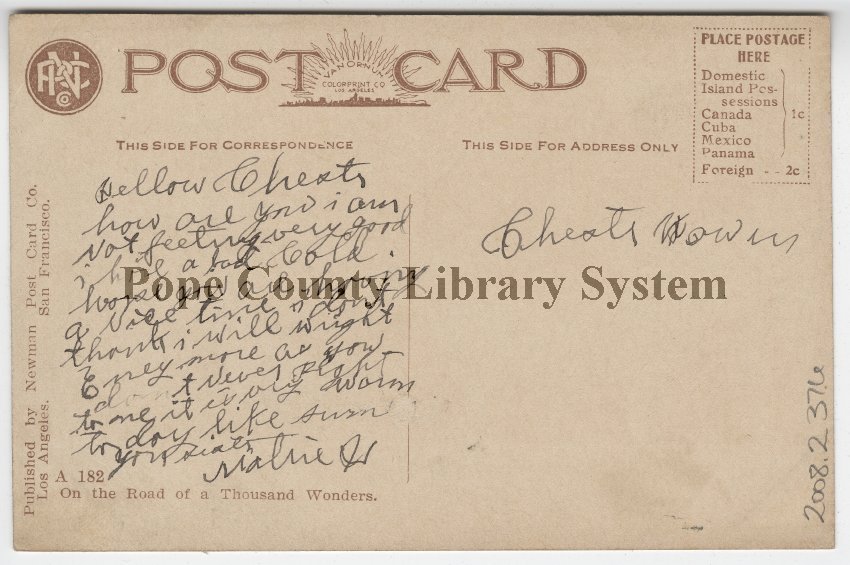 POST CARD
VAN ORNUM
COLORPRINT CO
LOS ANGELES
PLACE POSTAGE
HERE
Domestic
Island Pos-
sessions
Canada 1c
Cuba
Mexico
Panama
Foreign - - 2c
THIS SIDE FOR CORRESPONDENCE
THIS SIDE FOR ADDRESS ONLY
Hellow Chests
how are you i am
not feeling very good
i have a bad Cold.
hope you are having
a nice time i dont
thank i will wright
Eney more as you
dont never right
to me it is very warm
to day like sum
your sister
Mattie H
Chests Howen
Pope County Library System
Published by Newman Post Card Co.
Los Angeles. San Francisco.
A 182
On the Road of a Thousand Wonders.
2008.2.376